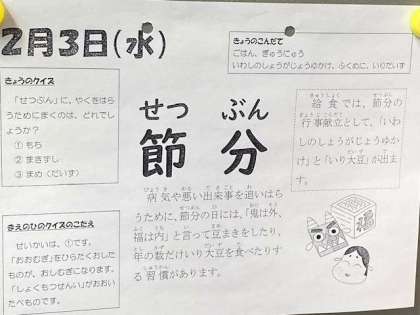 2月3日(水)
きょうのこんだて
ごはん、ぎゅうにゅう
いわしのしょうがじょうゆかけ、ふくめに、いりだいず
きょうのクイズ
「せつぶん」に、やくをはら
うためにまくのは、どれでし
ょうか？
① もち
② まきずし
③ まめ（だいず）
せつ ぶん
節 分
給食では、節分の
行事献立として、「いわ
しのしょうがじょうゆか
け」と「いり大豆」が出ま
す。
病気や悪い出来事を追いはら
うために、節分の日には、「鬼は外、
福は内」と言って豆まきをしたり、
年の数だけいり大豆を食べたりす
る習慣があります。
まえのひのクイズのこたえ
せいかいは、①です。
「おおむぎ」をひらたくおした
ものが、おしむぎになります。
「しょくもつせんい」がおおい
たべものです。
福